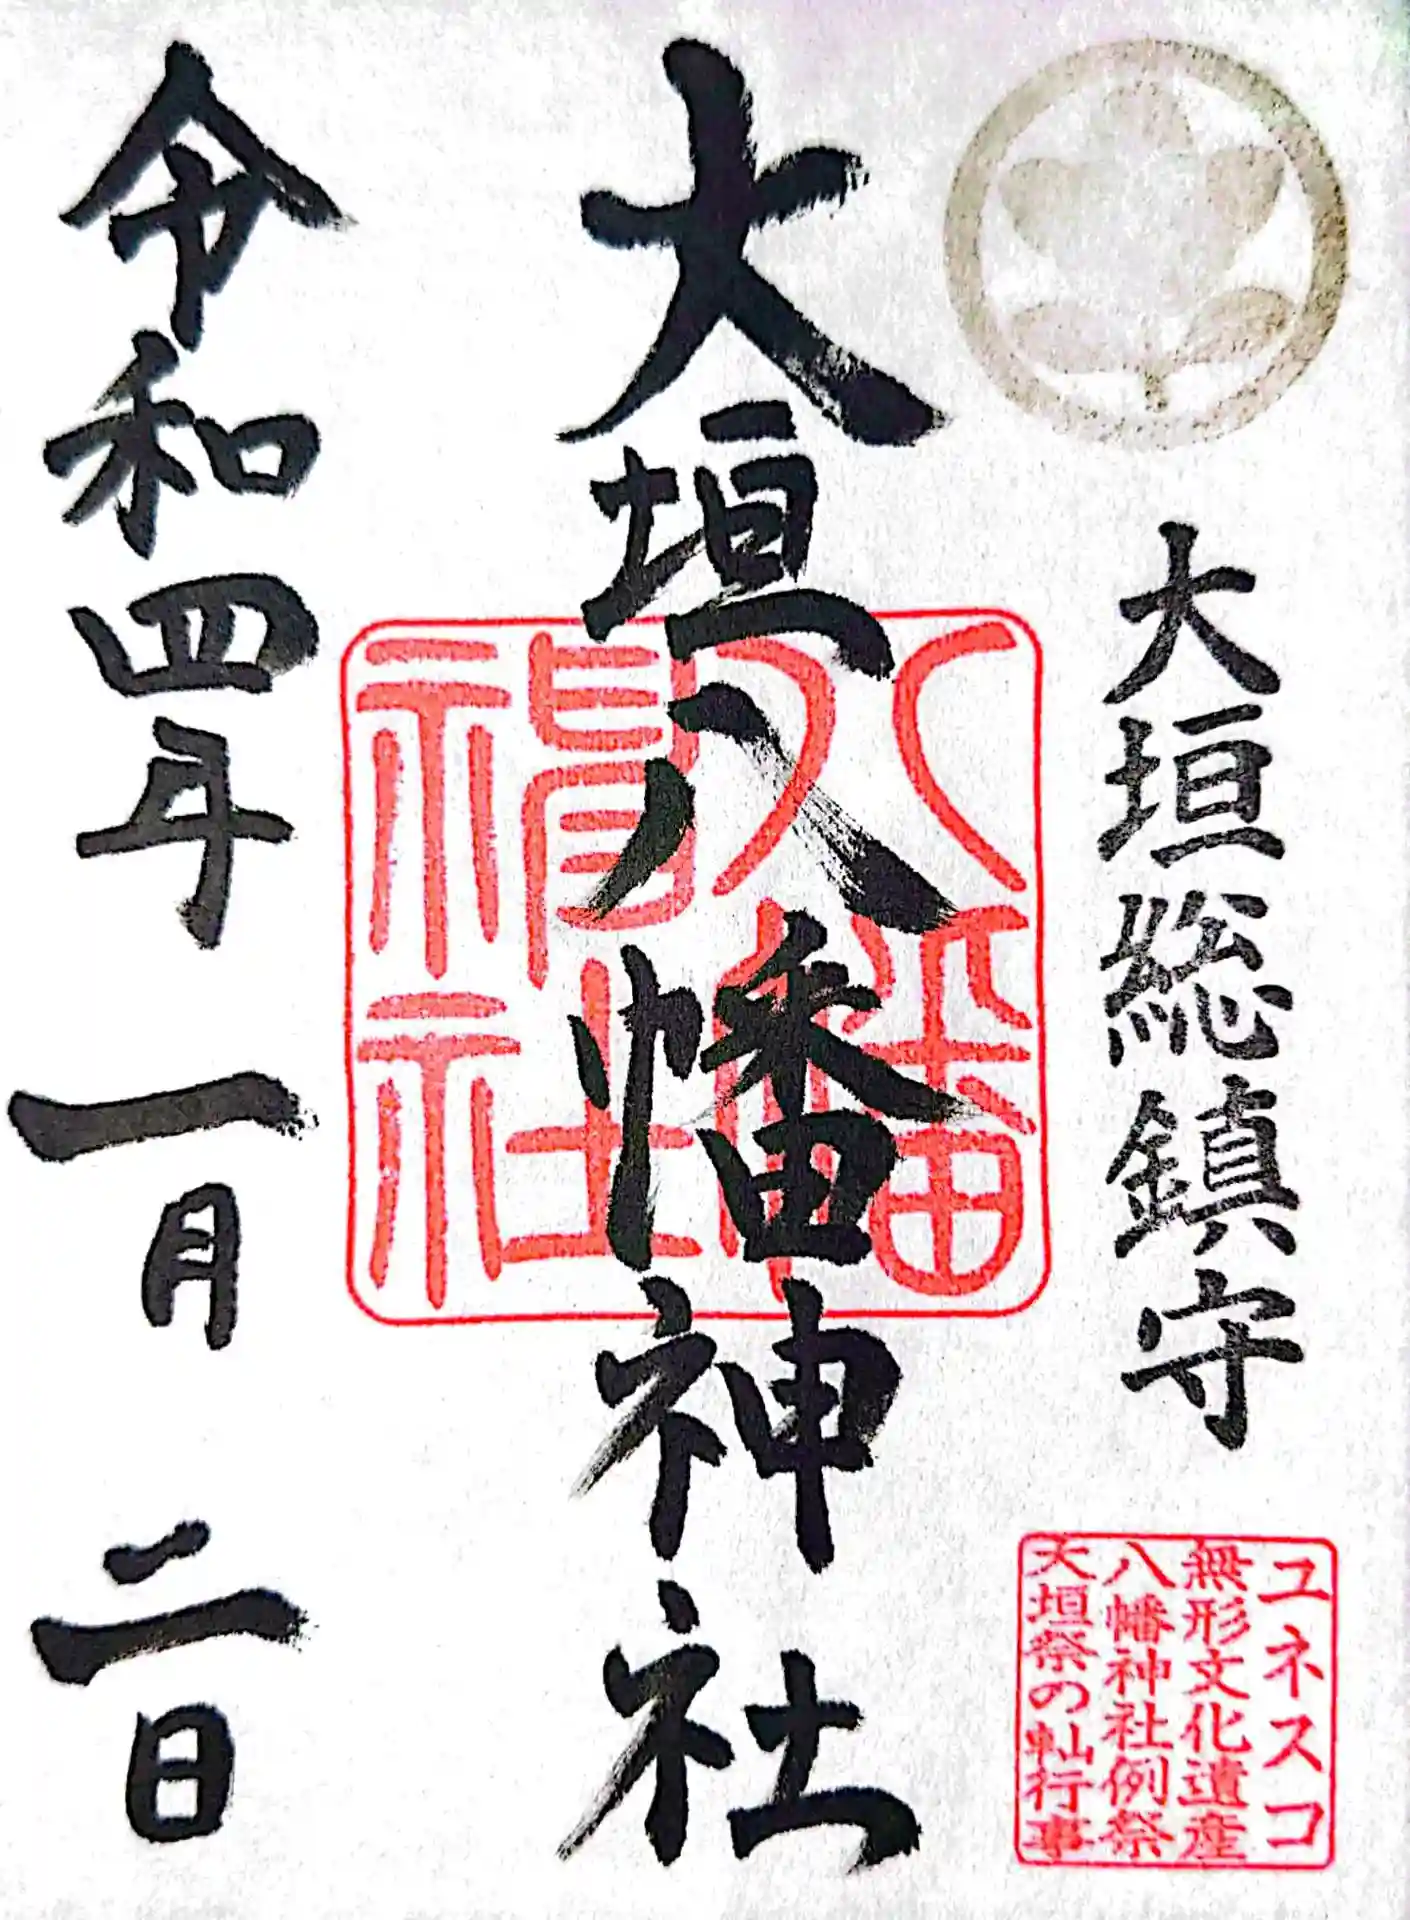 大垣総鎮守
ユネスコ
無形文化遺産
八幡神社例祭
大垣祭の軕行事
大垣八幡神社
八幡
神社
令和四年一月二日